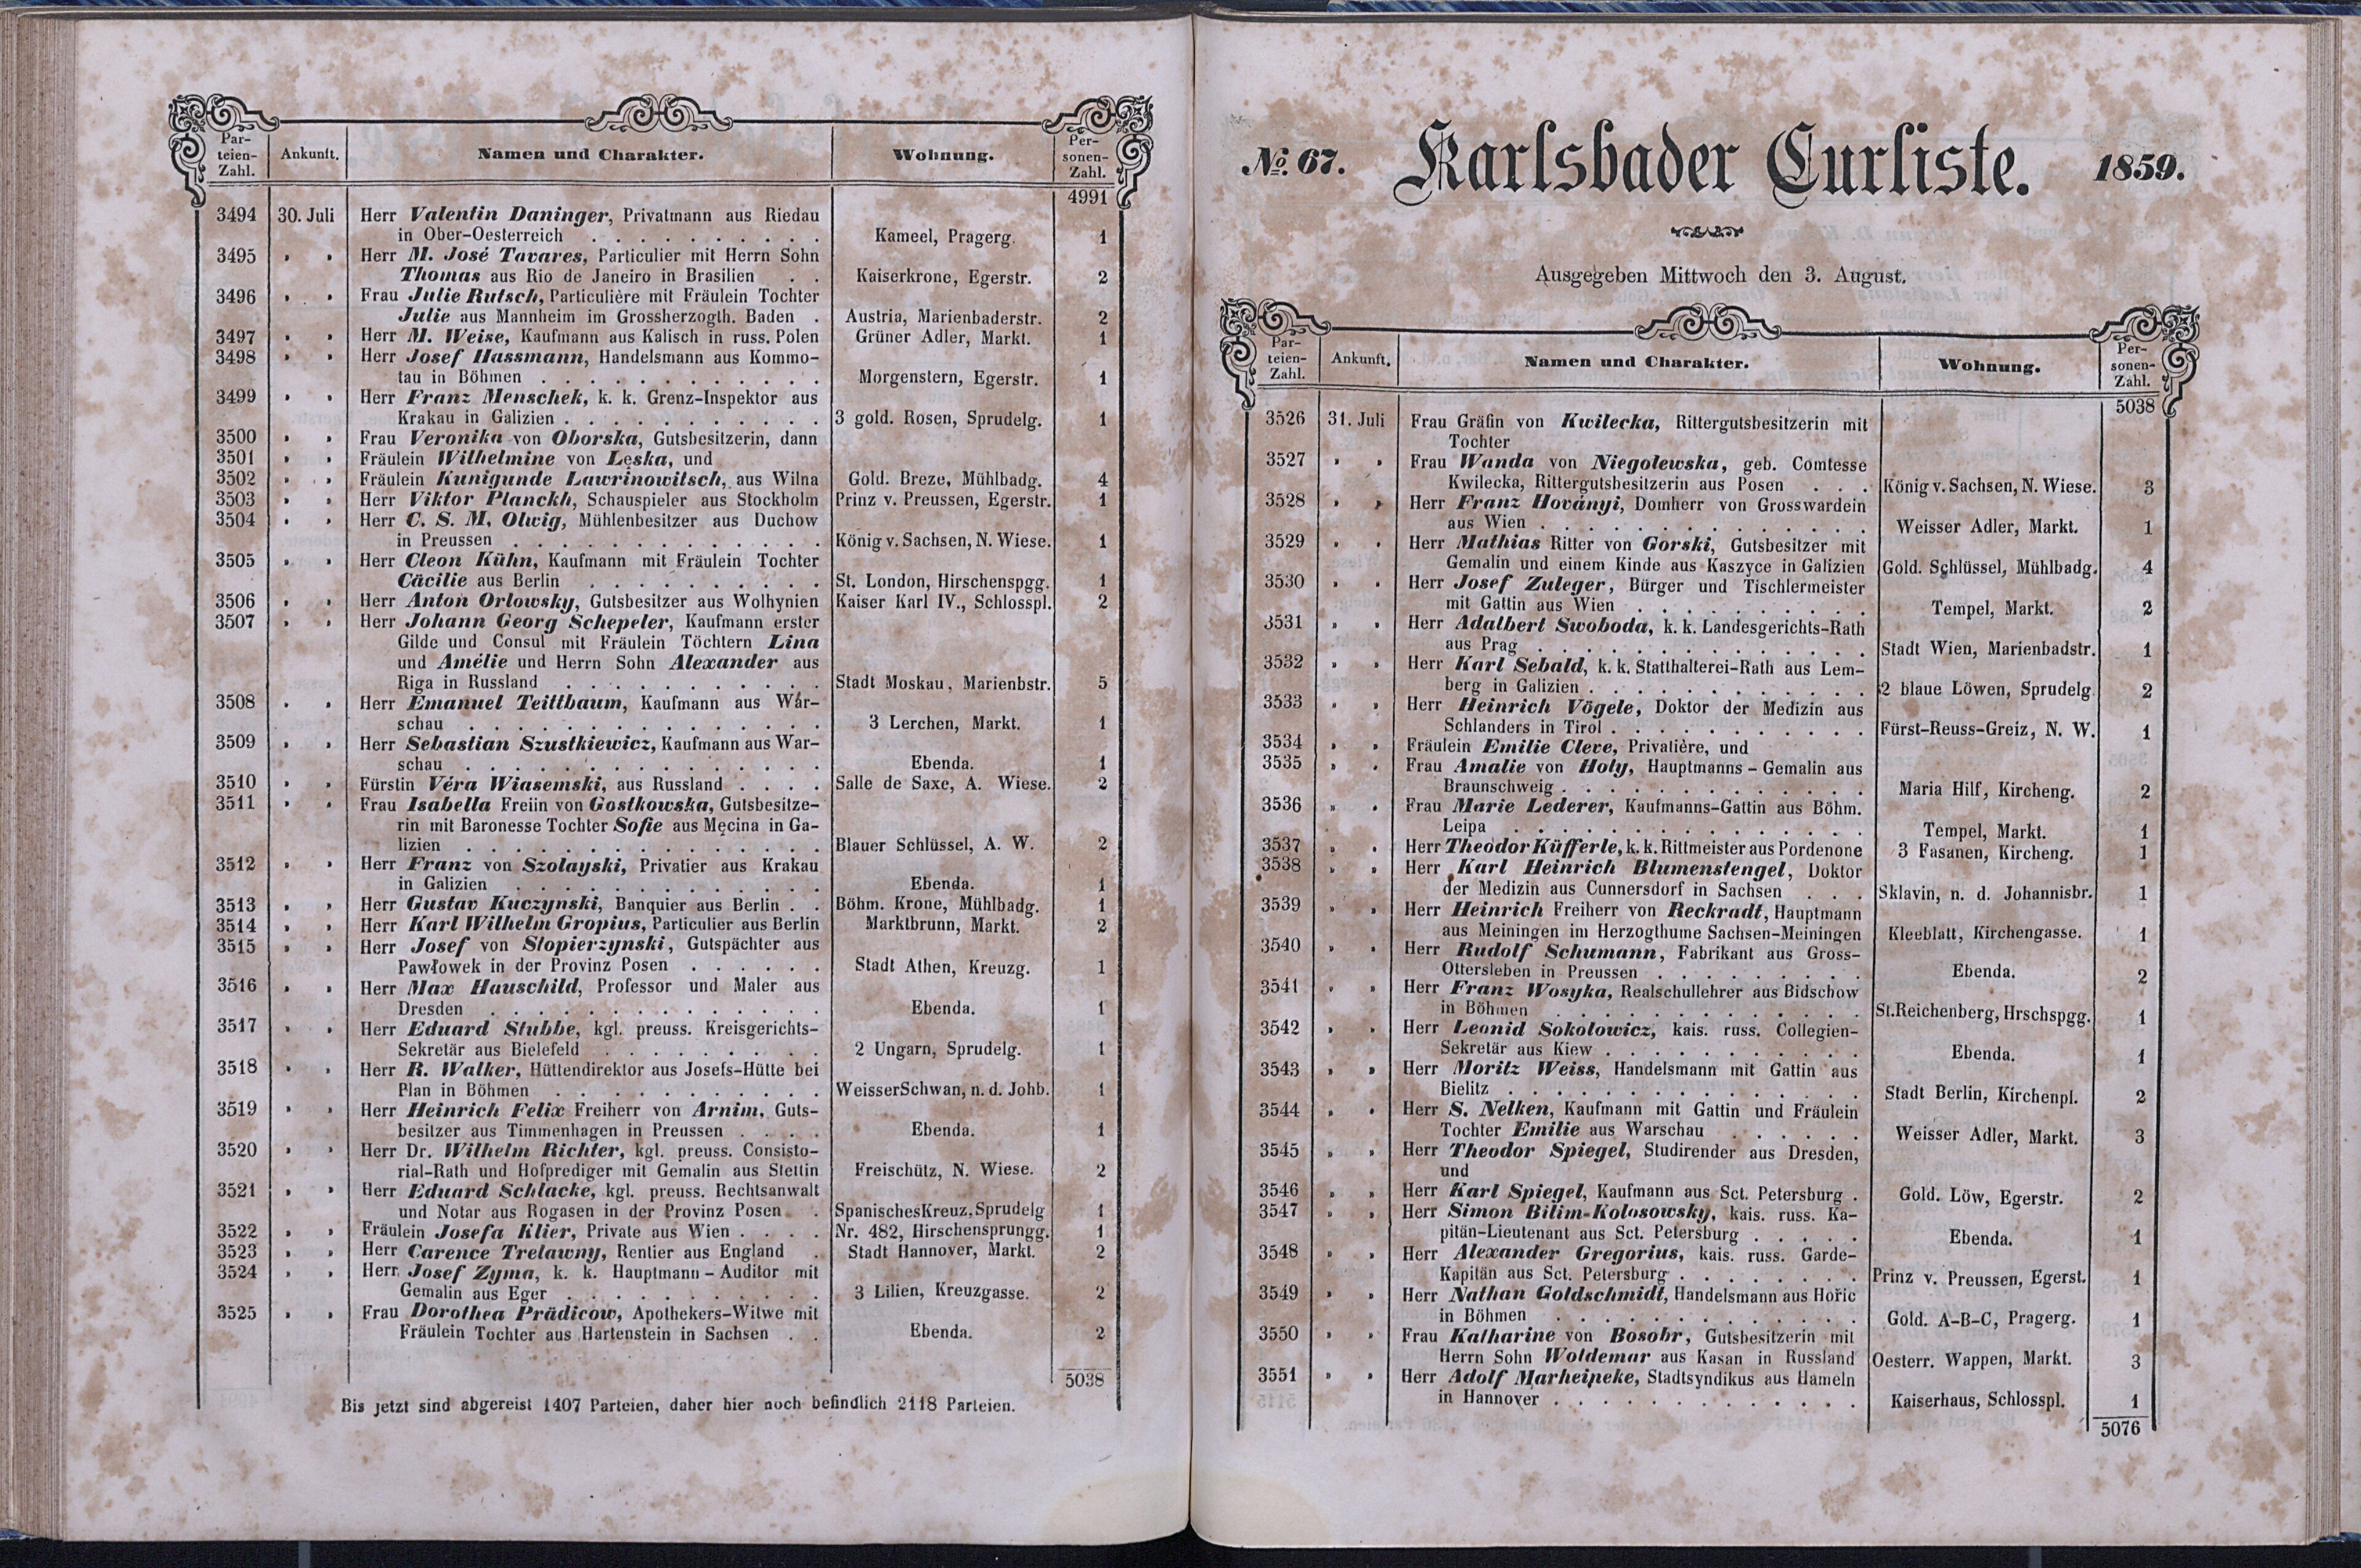 Par-
teien-
Zahl.
Ankunft.
Namen und Charakter.
Wohnung.
Per-
sonen-
Zahl.
4991
3494 30. Juli Herr Valentin Daninger, Privatmann aus Riedau
in Ober-Oesterreich . . . . . . . . . . Kameel, Pragerg. 1
3495 „ „ Herr M. José Tavares, Particulier mit Herrn Sohn
Thomas aus Rio de Janeiro in Brasilien . . Kaiserkrone, Egerstr. 2
3496 „ „ Frau Julie Rutsch, Particulière mit Fräulein Tochter
Julie aus Mannheim im Grossherzogth. Baden . Austria, Marienbaderstr. 2
3497 „ „ Herr M. Weise, Kaufmann aus Kalisch in russ. Polen Grüner Adler, Markt. 1
3498 „ „ Herr Josef Hassmann, Handelsmann aus Kommo-
tau in Böhmen . . . . . . . . . . . . Morgenstern, Egerstr. 1
3499 „ „ Herr Franz Menschek, k. k. Grenz-Inspektor aus
Krakau in Galizien . . . . . . . . . . . 3 gold. Rosen, Sprudelg. 1
3500 „ „ Frau Veronika von Oborska, Gutsbesitzerin, dann
3501 „ „ Fräulein Wilhelmine von Łeska, und
3502 „ „ Fräulein Kunigunde Lawrinowitsch, aus Wilna Gold. Breze, Mühlbadg. 4
3503 „ „ Herr Viktor Planckh, Schauspieler aus Stockholm Prinz v. Preussen, Egerstr. 1
3504 „ „ Herr C. S. M. Olwig, Mühlenbesitzer aus Duchow
in Preussen . . . . . . . . . . . . . König v. Sachsen, N. Wiese. 1
3505 „ „ Herr Cleon Kühn, Kaufmann mit Fräulein Tochter
Cäcilie aus Berlin . . . . . . . . . . St. London, Hirschenspgg. 1
3506 „ „ Herr Anton Orlowsky, Gutsbesitzer aus Wolhynien Kaiser Karl IV., Schlosspl. 2
3507 „ „ Herr Johann Georg Schepeler, Kaufmann erster
Gilde und Consul mit Fräulein Töchtern Lina
und Amélie und Herrn Sohn Alexander aus
Riga in Russland . . . . . . . . . . . Stadt Moskau, Marienbstr. 5
3508 „ „ Herr Emanuel Teittbaum, Kaufmann aus War-
schau . . . . . . . . . . . . . . . 3 Lerchen, Markt. 1
3509 „ „ Herr Sebastian Szustkiewicz, Kaufmann aus War-
schau . . . . . . . . . . . . . . . Ebenda. 1
3510 „ „ Fürstin Véra Wiasemski, aus Russland . . . . Salle de Saxe, A. Wiese. 2
3511 „ „ Frau Isabella Freiin von Gostkowska, Gutsbesitze-
rin mit Baronesse Tochter Sofie aus Męcina in Ga-
lizien . . . . . . . . . . . . . . . Blauer Schlüssel, A. W. 2
3512 „ „ Herr Franz von Szolayski, Privatier aus Krakau
in Galizien . . . . . . . . . . . . . Ebenda. 1
3513 „ „ Herr Gustav Kuczynski, Banquier aus Berlin . . Böhm. Krone, Mühlbadg. 1
3514 „ „ Herr Karl Wilhelm Gropius, Particulier aus Berlin Marktbrunn, Markt. 2
3515 „ „ Herr Josef von Stopierzynski, Gutspächter aus
Pawłowek in der Provinz Posen . . . . . . Stadt Athen, Kreuzg. 1
3516 „ „ Herr Max Hauschild, Professor und Maler aus
Dresden . . . . . . . . . . . . . . Ebenda. 1
3517 „ „ Herr Eduard Stubbe, kgl. preuss. Kreisgerichts-
Sekretär aus Bielefeld . . . . . . . . . 2 Ungarn, Sprudelg. 1
3518 „ „ Herr R. Walker, Hüttendirektor aus Josefs-Hütte bei
Plan in Böhmen . . . . . . . . . . . . WeisserSchwan, n. d. Johb. 1
3519 „ „ Herr Heinrich Felix Freiherr von Arnim, Guts-
besitzer aus Timmenhagen in Preussen . . . . Ebenda. 1
3520 „ „ Herr Dr. Wilhelm Richter, kgl. preuss. Consisto-
rial-Rath und Hofprediger mit Gemalin aus Stettin Freischütz, N. Wiese. 2
3521 „ „ Herr Eduard Schlacke, kgl. preuss. Rechtsanwalt
und Notar aus Rogasen in der Provinz Posen . SpanischesKreuz, Sprudelg 1
3522 „ „ Fräulein Josefa Klier, Private aus Wien . . . . Nr. 482, Hirschensprungg. 1
3523 „ „ Herr Carence Trelawny, Rentier aus England . Stadt Hannover, Markt. 2
3524 „ „ Herr Josef Zyma, k. k. Hauptmann-Auditor mit
Gemalin aus Eger . . . . . . . . . . . 3 Lilien, Kreuzgasse. 2
3525 „ „ Frau Dorothea Prädicow, Apothekers-Witwe mit
Fräulein Tochter aus Hartenstein in Sachsen . . Ebenda. 2
5038
Bis jetzt sind abgereist 1407 Parteien, daher hier noch befindlich 2118 Parteien.
No. 67. Karlsbader Curliste. 1859.
Ausgegeben Mittwoch den 3. August.
Par-
teien-
Zahl.
Ankunft.
Namen und Charakter.
Wohnung.
Per-
sonen-
Zahl.
5038
3526 31. Juli Frau Gräfin von Kwilecka, Rittergutsbesitzerin mit
Tochter
3527 „ „ Frau Wanda von Niegolewska, geb. Comtesse
Kwilecka, Rittergutsbesitzerin aus Posen . . . König v. Sachsen, N. Wiese. 3
3528 „ „ Herr Franz Hoványi, Domherr von Grosswardein
aus Wien . . . . . . . . . . . . . . Weisser Adler, Markt. 1
3529 „ „ Herr Mathias Ritter von Gorski, Gutsbesitzer mit
Gemalin und einem Kinde aus Kaszyce in Galizien Gold. Schlüssel, Mühlbadg. 4
3530 „ „ Herr Josef Zuleger, Bürger und Tischlermeister
mit Gattin aus Wien . . . . . . . . . . Tempel, Markt. 2
3531 „ „ Herr Adalbert Swoboda, k. k. Landesgerichts-Rath
aus Prag . . . . . . . . . . . . . . Stadt Wien, Marienbadstr. 1
3532 „ „ Herr Karl Sebald, k. k. Statthalterei-Rath aus Lem-
berg in Galizien . . . . . . . . . . . . 2 blaue Löwen, Sprudelg. 2
3533 „ „ Herr Heinrich Vögele, Doktor der Medizin aus
Schlanders in Tirol . . . . . . . . . . . Fürst-Reuss-Greiz, N. W. 1
3534 „ „ Fräulein Emilie Cleve, Privatière, und
3535 „ „ Frau Amalie von Holy, Hauptmanns-Gemalin aus
Braunschweig . . . . . . . . . . . . . Maria Hilf, Kircheng. 2
3536 „ „ Frau Marie Lederer, Kaufmanns-Gattin aus Böhm.
Leipa . . . . . . . . . . . . . . . Tempel, Markt. 1
3537 „ „ Herr Theodor Küfferle, k. k. Rittmeister aus Pordenone 3 Fasanen, Kircheng. 1
3538 „ „ Herr Karl Heinrich Blumenstengel, Doktor
der Medizin aus Cunnersdorf in Sachsen . . . Sklavin, n. d. Johannisbr. 1
3539 „ „ Herr Heinrich Freiherr von Reckradt, Hauptmann
aus Meiningen im Herzogthume Sachsen-Meiningen Kleeblatt, Kirchengasse. 1
3540 „ „ Herr Rudolf Schumann, Fabrikant aus Gross-
Ottersleben in Preussen . . . . . . . . . Ebenda. 2
3541 „ „ Herr Franz Wosyka, Realschullehrer aus Bidschow
in Böhmen . . . . . . . . . . . . . St.Reichenberg, Hrschspgg. 1
3542 „ „ Herr Leonid Sokolowicz, kais. russ. Collegien-
Sekretär aus Kiew . . . . . . . . . . . Ebenda. 1
3543 „ „ Herr Moritz Weiss, Handelsmann mit Gattin aus
Bielitz . . . . . . . . . . . . . . . Stadt Berlin, Kirchenpl. 2
3544 „ „ Herr S. Nelken, Kaufmann mit Gattin und Fräulein
Tochter Emilie aus Warschau . . . . . . Weisser Adler, Markt. 3
3545 „ „ Herr Theodor Spiegel, Studirender aus Dresden,
und
3546 „ „ Herr Karl Spiegel, Kaufmann aus Sct. Petersburg . Gold. Löw, Egerstr. 2
3547 „ „ Herr Simon Bilim-Kolosowsky, kais. russ. Ka-
pitän-Lieutenant aus Sct. Petersburg . . . . . Ebenda. 1
3548 „ „ Herr Alexander Gregorius, kais. russ. Garde-
Kapitän aus Sct. Petersburg . . . . . . . . Prinz v. Preussen, Egerst. 1
3549 „ „ Herr Nathan Goldschmidt, Handelsmann aus Hořic
in Böhmen . . . . . . . . . . . . . Gold. A-B-C, Pragerg. 1
3550 „ „ Frau Katharine von Bosobr, Gutsbesitzerin mit
Herrn Sohn Woldemar aus Kasan in Russland Oesterr. Wappen, Markt. 3
3551 „ „ Herr Adolf Marheineke, Stadtsyndikus aus Hameln
in Hannover . . . . . . . . . . . . . Kaiserhaus, Schlosspl. 1
5076